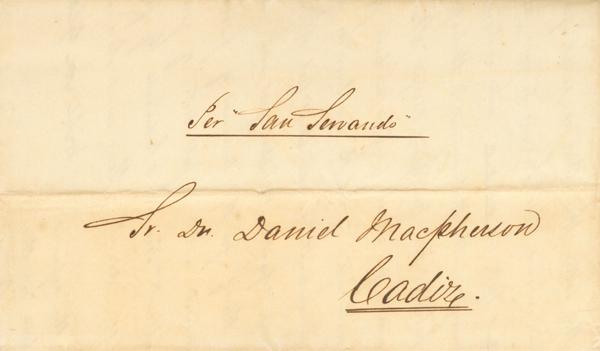 Per "San Servando"
Sr. Dn. Daniel Macpherson
Cadiz.